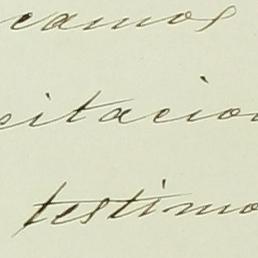 camos
citacion
testimo